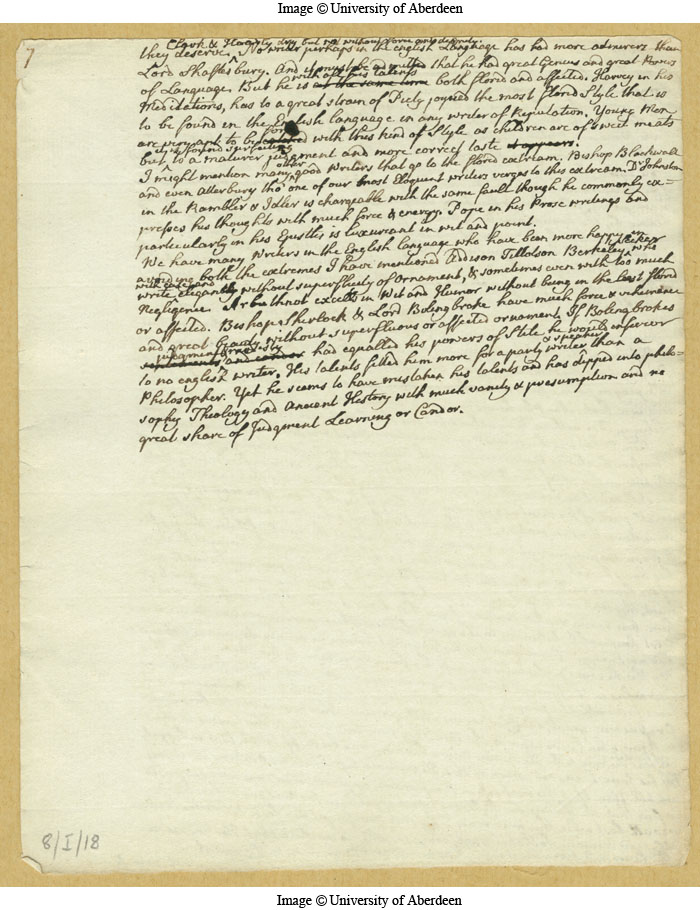 Image © University of Aberdeen
7
Clark & Hoadly dry but not without force and dignity.
they deserve. No writer perhaps in the english Language has had more admirers than
Lord Shaftesbury. And it must be admitted that he had great Genius and great Powers
with all his talents
of Language. But he is at the same time both florid and affected. Harvey in his
Meditations, has to a great strain of Piety joyned the most florid Style that is
to be found in the English language in any writer of Reputation. Young Men
are very apt to be with this kind of Style as children are of sweet meats
but to a maturer judgment and more correct taste it appears.
it is found surfeiting
other
I might mention many good Writers that go to the florid extream. Bishop Blackwall
and even Atterbury tho one of our most Eloquent writers verges to this extream. Dr Johnston
in the Rambler & Idler is chargeable with the same fault though he commonly ex=
presses his thoughts with much force & energy. Pope in his Prose writings and
particularly in his Epistles is luxuriant in wit and point.
We have many Writers in the English language who have been more happy in
avoiding both the extremes I have mentioned Addison Tillotson Berkeley, who
with ease and
write elegantly without superfluity of Ornament, & sometimes even with too much
Negligence. Arbuthnot excells in Wit and Humor without being in the least florid
or affected. Bishops Sherlock & Lord Bolingbroke have much force & vehemence
and great Beauty without superfluous or affected ornament. If Bolingbrokes
judgment
sentiments and candor had equalled his powers of Stile he would inferior
to no english writer. His talents fitted him more for a party writer than a
& speaker
Philosopher. Yet he seems to have mistaken his talents and has dipped into philo=
sophy Theology and Ancient History with much vanity & presumption and no
great share of Judgment Learning or Candor.
8/I/18
Image © University of Aberdeen